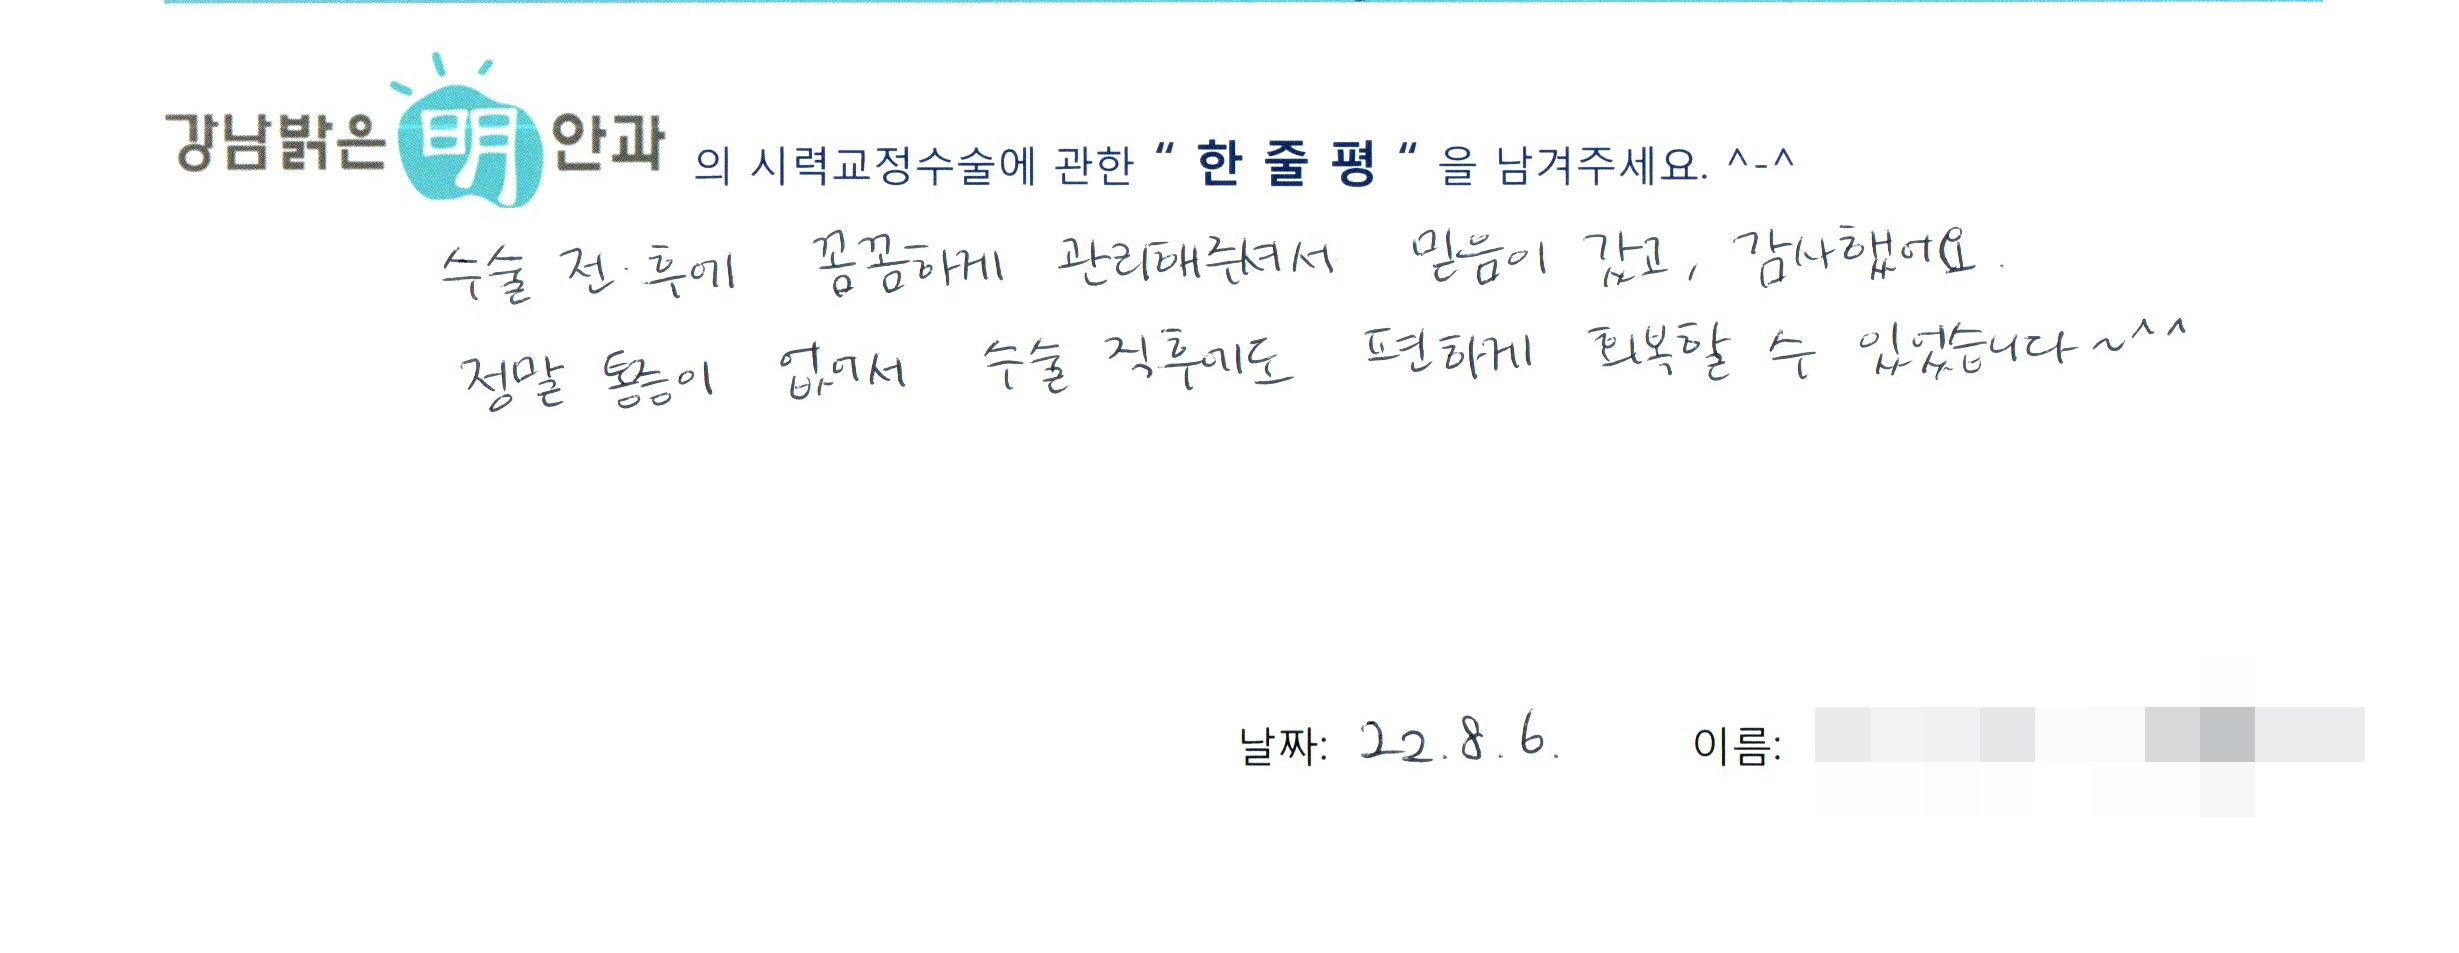 강남밝은 明 안과 의 시력교정수술에 관한 “ 한 줄 평 “ 을 남겨주세요. ^-^
수술 전·후에 꼼꼼하게 관리해주셔서 믿음이 갔고, 감사했어요.
정말 통증이 없어서 수술 직후에도 편하게 회복할 수 있었습니다~^^
날짜: 22.8.6. 이름: